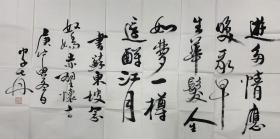 遊多情應
笑我早
生華髮人
如夢一樽
還酹江月
書蘇東坡念
奴嬌赤壁懷古